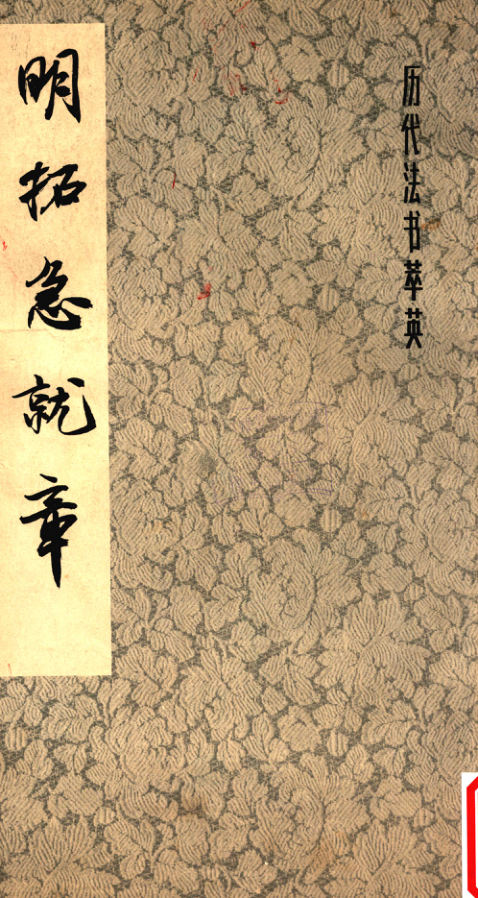 历代法书萃英
明拓急就章